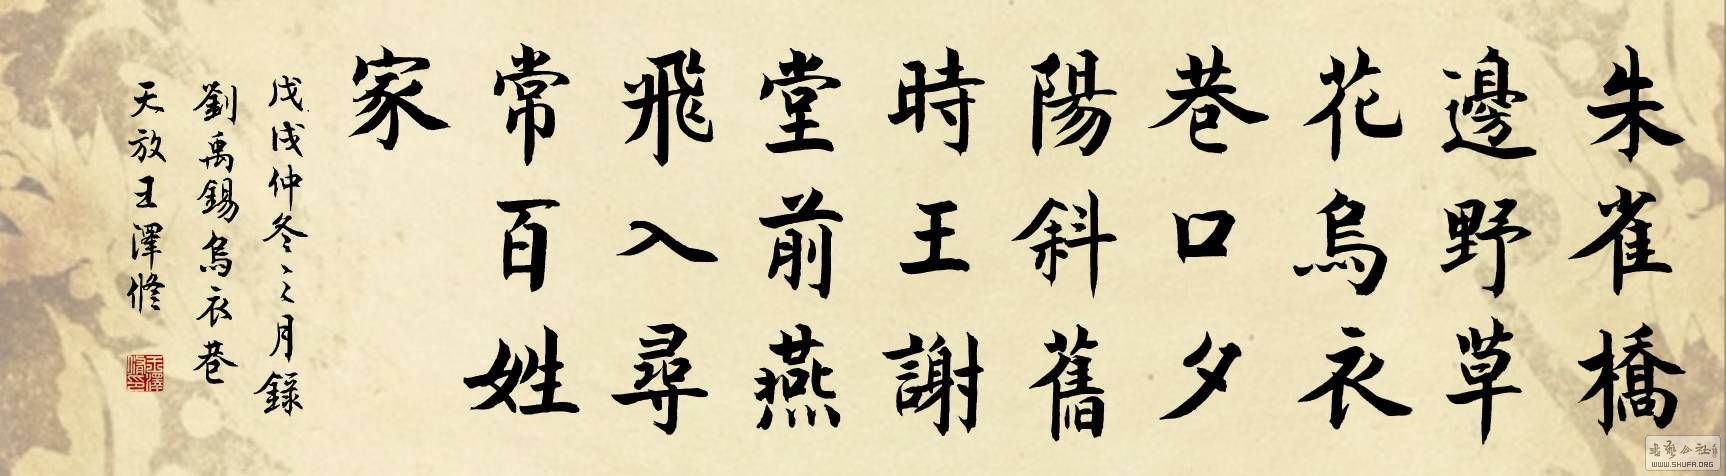 朱雀橋
邊野草
花烏衣
巷口夕
陽斜舊
時王謝
堂前燕
飛入尋
常百姓
家
戊戌仲冬之月錄
劉禹錫烏衣巷
天放王澤修
王澤修印
WWW.SHUFA.ORG